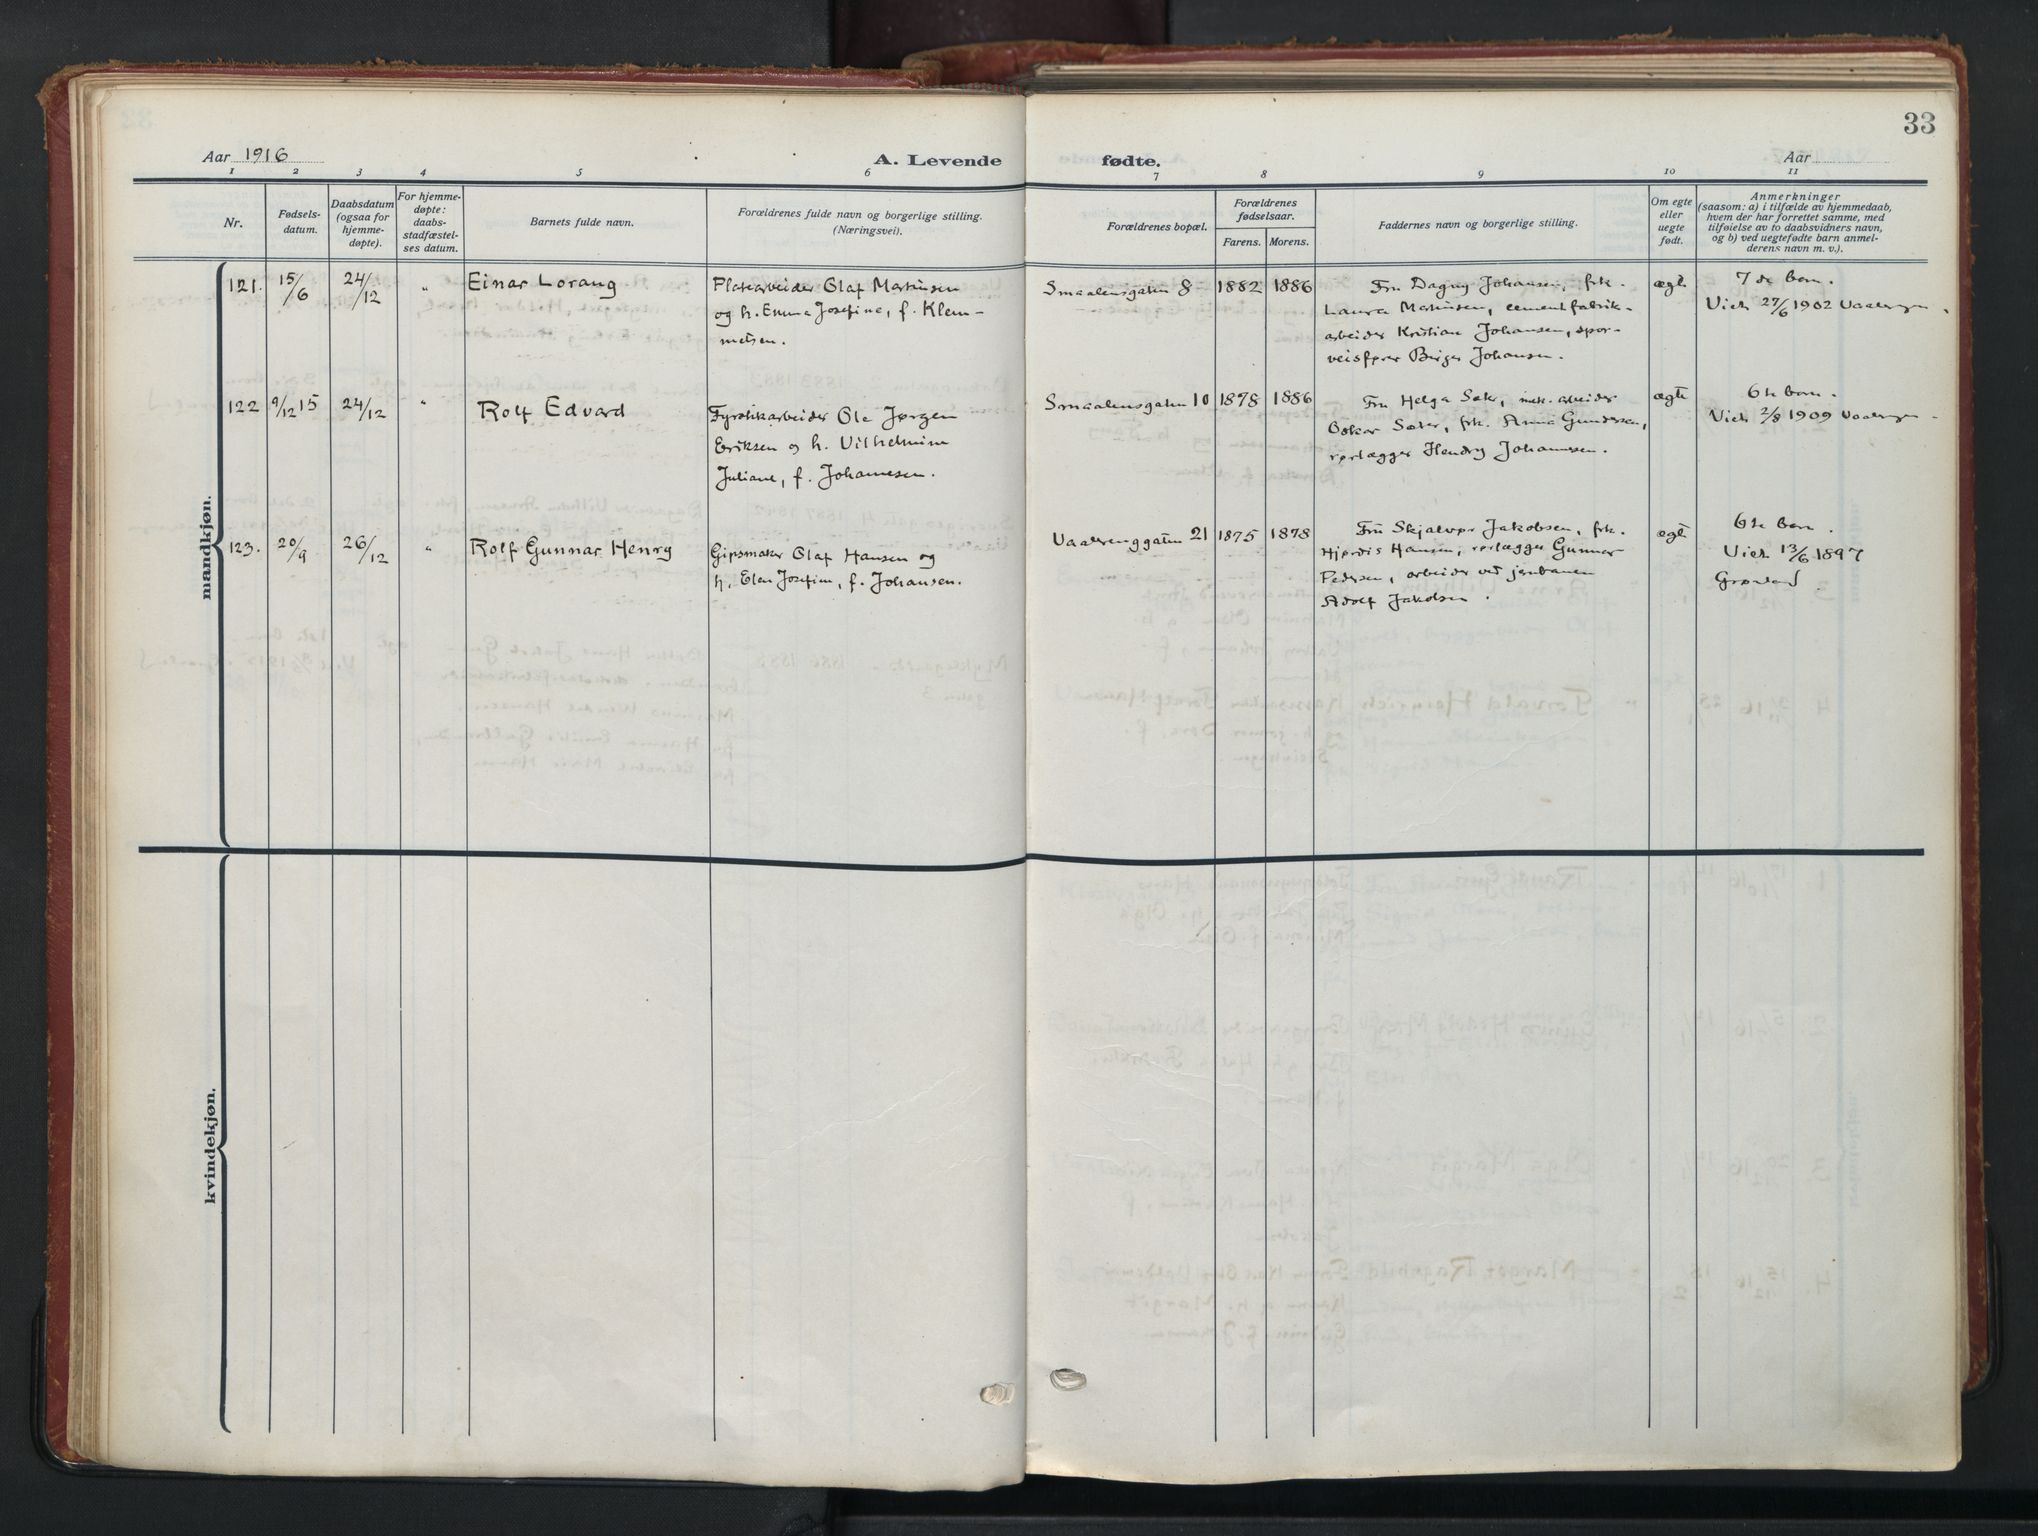 33
Aar 1916
A. Levende
fødte.
Aar
1 2 3 4 5 6 7 8 9 10 11
Nr.
Fødsels-
datum.
Daabsdatum
(ogsaa for
hjemme-
døpte).
For hjemme-
døpte:
daabs-
stadfæstel-
ses datum.
Barnets fulde navn.
Forældrenes fulde navn og borgerlige stilling.
(Næringsvei).
Forældrenes bopæl.
Forældrenes
fødselsaar.
Farens. Morens.
Faddernes navn og borgerlige stilling.
Om egte
eller
uegte
født.
Anmerkninger
(saasom: a) i tilfælde av hjemmedaab,
hvem der har forrettet samme, med
tilføielse av to daabsvidners navn,
og b) ved uegtefødte barn anmel-
derens navn m. v.).
mandkjøn.
121. 15/6 24/12 " Einar Lorang
Platearbeider Olaf Martinsen
og h. Emma Josefine, f. Klem-
metsen.
Smaalensgaten 8 1882 1886
Fru Dagny Johansen, frk.
Laura Martinsen, cementfabrik-
arbeider Kristian Johansen, spor-
veisfører Birger Johansen.
ægte
7 de barn.
Viet 27/6 1902 Vaalerengen.
122 9/12 15 24/12 " Rolf Edvard
Fyrstikarbeider Ole Jørgen
Eriksen og h. Vilhelmine
Juliane, f. Johannesen.
Smaalensgaten 10 1878 1886
Fru Helga Sæter, mek. arbeider
Oskar Sæter, frk. Anna Gundersen,
rørlægger Hendry Johannesen.
ægte
6te barn.
Viet 2/8 1909 Vaalerengen
123. 20/9 26/12 " Rolf Gunnar Henry
Gipsmaker Olaf Hansen og
h. Elen Josefine, f. Johansen.
Vaalerenggaten 21 1875 1878
Fru Skjalvør Jakobsen, frk.
Hjørdis Hansen, rørlægger Gunnar
Pedersen, arbeider ved jernbanen
Adolf Jakobsen.
ægte
6te barn.
Viet 13/6 1897
Grønland
kvindekjøn.